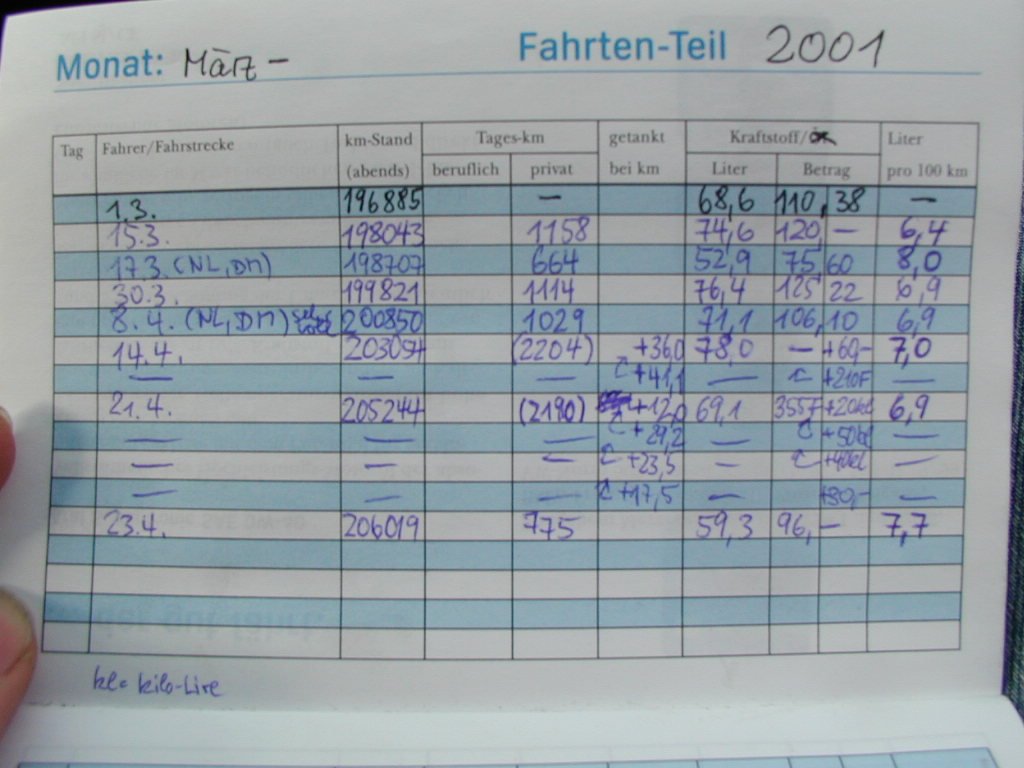 Monat: März – Fahrten-Teil 2001
Tag Fahrer/Fahrstrecke km-Stand (abends) Tages-km beruflich privat getankt bei km Kraftstoff/ Liter Betrag Liter pro 100 km
1.3. 196885 — 68,6 110,38 —
15.3. 198043 1158 74,6 120 — 6,4
17.3. (NL, DM) 198707 664 52,9 75 60 8,0
30.3. 199821 1114 76,4 125 22 6,9
8.4. (NL, DM) 200850 1029 71,1 106,10 6,9
14.4. 203054 (2204) +36,0 78,0 — +60,- 7,0
— — — +41,1 — +210F —
21.4. 205244 (2190) +12,0 69,1 3557 +20kl 6,9
— — — +29,2 — +50kl —
— — — +23,5 — +40kl —
— — — +17,5 — +30,- —
23.4. 206019 775 59,3 96,- 7,7
kl = kilo-Lire